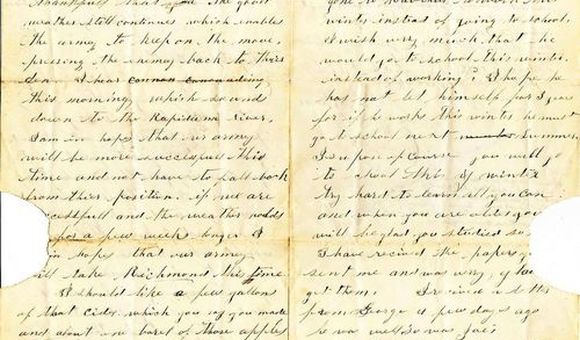 thankfull that
weather still continues which enables
the army to keep on the move
pressing the enemy back to their
den. I hear connon cannonading
this morning which sound
down to the Rapidann River,
I am in hopes that our army
will be more successfull this
time and not have to fall back
from thier position. if we are
successfull and the weather holds
for a few week longer I
in hopes that our army
will take Richmond this time.
I should like a few gallon
of that cider which you say you made
and about one barel of those apples
winter instead of going to school,
I wish very much that he
would go to school this winter,
instead of working; I hope he
has not let himself for 3 years
for if he works this winter he must
go to school next summer,
I supose of course you will go
to school this winter
try hard to learn all you can
and when you are older you
will be glad you studied so
I have recived the papers you
sent me and was very glad
get them. I received a letter
from George a few days ago
he was well so was Joe's